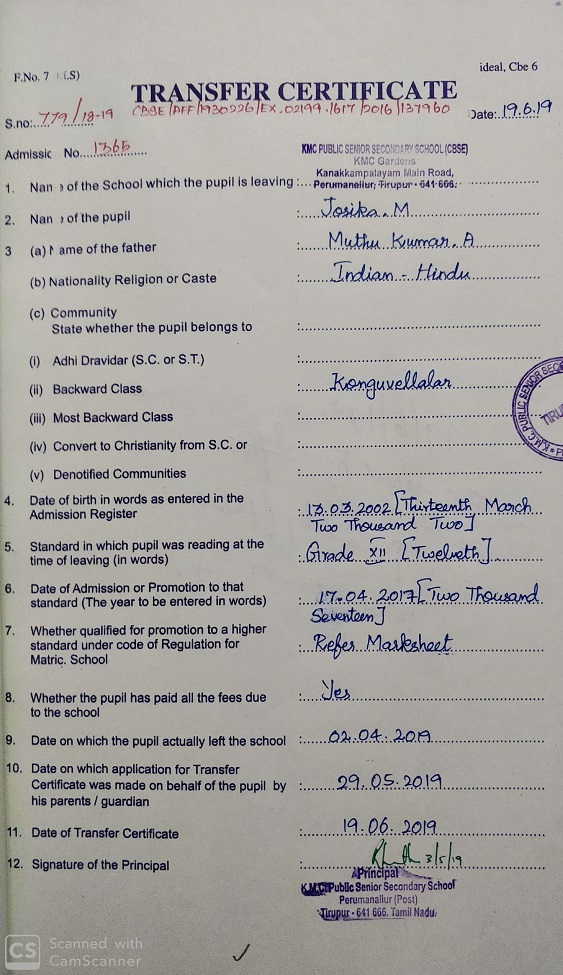 F.No. 7 (.S)
ideal, Cbe 6
TRANSFER CERTIFICATE
CBSE/AFF/1930226/EX.02199.1617/2016/137960
S.no: 779/18-19
Date: 19.6.19
Admissic No. 1365
KMC PUBLIC SENIOR SECONDARY SCHOOL (CBSE)
KMC Gardens
Kanakkampalayam Main Road,
1. Nan e of the School which the pupil is leaving : Perumanallur, Tirupur - 641 666.
2. Nan e of the pupil : Josika. M
3 (a) N ame of the father : Muthu Kumar. A
(b) Nationality Religion or Caste : Indian - Hindu
(c) Community
State whether the pupil belongs to :
(i) Adhi Dravidar (S.C. or S.T.) :
(ii) Backward Class : Konguvellalar
(iii) Most Backward Class :
(iv) Convert to Christianity from S.C. or :
(v) Denotified Communities :
4. Date of birth in words as entered in the
Admission Register : 13.03.2002 [Thirteenth March
Two Thousand Two]
5. Standard in which pupil was reading at the
time of leaving (in words) : Grade XII [Twelveth]
6. Date of Admission or Promotion to that
standard (The year to be entered in words) : 17.04.2017 [Two Thousand
Seventeen]
7. Whether qualified for promotion to a higher
standard under code of Regulation for : Refer Marksheet
Matric. School
8. Whether the pupil has paid all the fees due : Yes
to the school
9. Date on which the pupil actually left the school : 02.04.2019
10. Date on which application for Transfer
Certificate was made on behalf of the pupil by : 29.05.2019
his parents / guardian
11. Date of Transfer Certificate : 19.06.2019
12. Signature of the Principal : 3/5/19
Principal
K.M.C. Public Senior Secondary School
Perumanallur (Post)
Tirupur - 641 666. Tamil Nadu.
K.M.C PUBLIC SENIOR SEC
TIRU
CS Scanned with
CamScanner